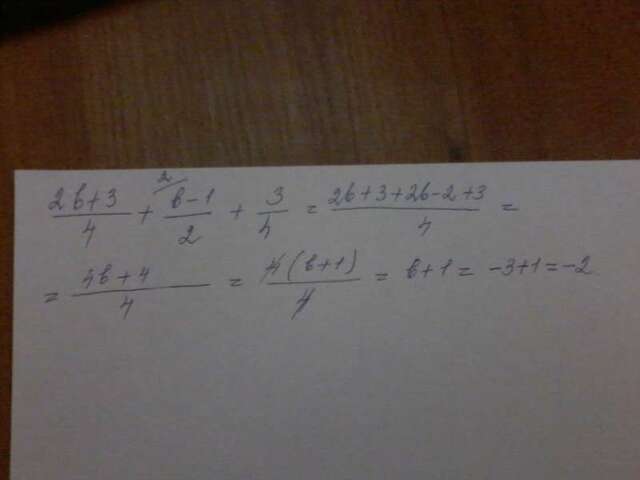 (2b+3)/4 + (b-1)/2 ²⁄ + 3/4 = (2b+3+2b-2+3)/4 =
= (4b+4)/4 = 4(b+1)/4 = b+1 = -3+1 = -2